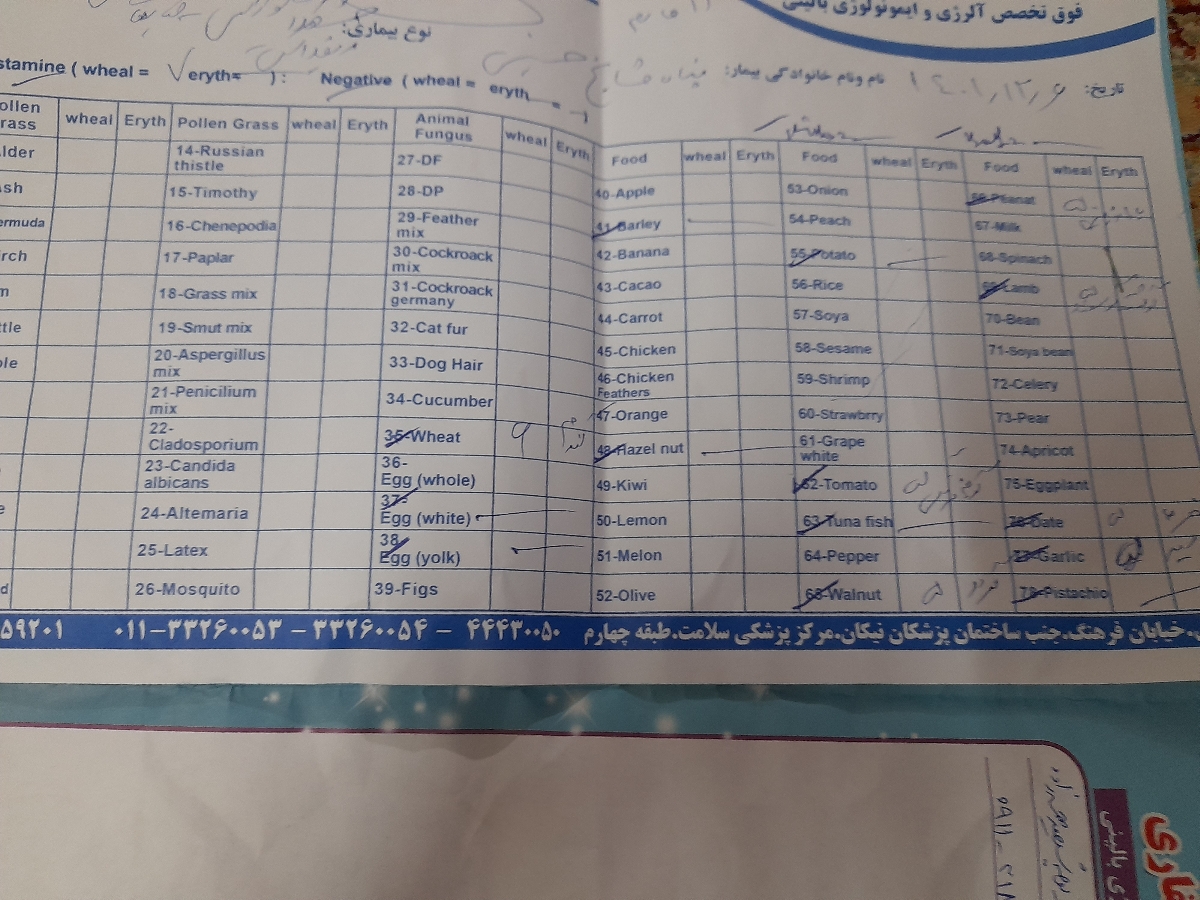 فوق تخصص آلرژی و ایمونولوژی بالینی
نوع بیماری:
تاریخ: ۱۴۰۱,۱۲,۶ نام ونام خانوادگی بیمار:
stamine ( wheal = eryth= ) : Negative ( wheal = eryth = )
ollen rass wheal Eryth Pollen Grass wheal Eryth Animal Fungus wheal Eryth Food wheal Eryth Food wheal Eryth Food wheal Eryth
lder 14-Russian thistle 27-DF 40-Apple 53-Onion
sh 15-Timothy 28-DP 41-Barley 54-Peach 67-Milk
ermuda 16-Chenepodia 29-Feather mix 42-Banana 55-Potato 68-Spinach
irch 17-Paplar 30-Cockroack mix 43-Cacao 56-Rice 69-Lamb
m 18-Grass mix 31-Cockroack germany 44-Carrot 57-Soya 70-Bean
ttle 19-Smut mix 32-Cat fur 45-Chicken 58-Sesame 71-Soya bean
ole 20-Aspergillus mix 33-Dog Hair 46-Chicken Feathers 59-Shrimp 72-Celery
21-Penicilium mix 34-Cucumber 47-Orange 60-Strawbrry 73-Pear
22-Cladosporium 35-Wheat 9 48-Hazel nut 61-Grape white 74-Apricot
23-Candida albicans 36-Egg (whole) 49-Kiwi 62-Tomato 75-Eggplant
e 24-Altemaria 37-Egg (white) 50-Lemon 63-Tuna fish Date
25-Latex 38 Egg (yolk) 51-Melon 64-Pepper Garlic
d 26-Mosquito 39-Figs 52-Olive Walnut Pistachio
خیابان فرهنگ.جنب ساختمان پزشکان نیکان.مرکز پزشکی سلامت.طبقه چهارم ۴۴۴۳۰۰۵۰ - ۳۳۲۶۰۰۵۴ - ۰۱۱-۳۳۲۶۰۰۵۳
۵۹۲۰۱